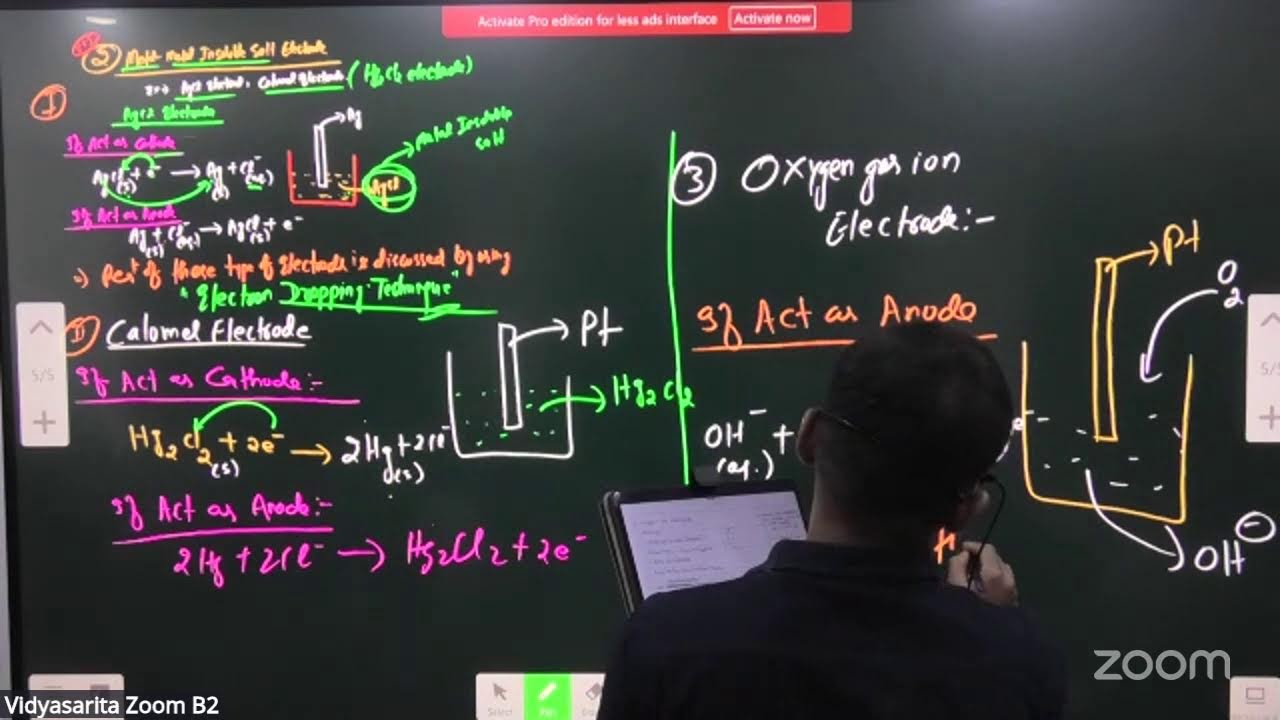 Activate Pro edition for less ads interface Activate now
② Metal-metal Insoluble Salt Electrode
Calomel Electrode (Hg2Cl2 electrode)
I
Electrode
If Act as Cathode
AgCl(s) + e⁻ → Ag(s) + Cl⁻(aq.)
→ Ag
AgCl
metal Insoluble
salt
If Act as Anode
Ag(s) + Cl⁻(aq.) → AgCl(s) + e⁻
of these type of Electrode is discussed by using
"Electron Dropping Technique"
II Calomel Electrode
If Act as Cathode:-
Hg2Cl2(s) + 2e⁻ → 2Hg(s) + 2Cl⁻
→ Pt
→ Hg2Cl2
If Act as Anode:-
2Hg + 2Cl⁻ → Hg2Cl2 + 2e⁻
③ Oxygen gas ion
Electrode:-
If Act as Anode
OH⁻(aq.) +
e⁻
→ Pt
O2
OH⁻
5/5
5/5
Select
Pen
Vidyasarita Zoom B2
zoom